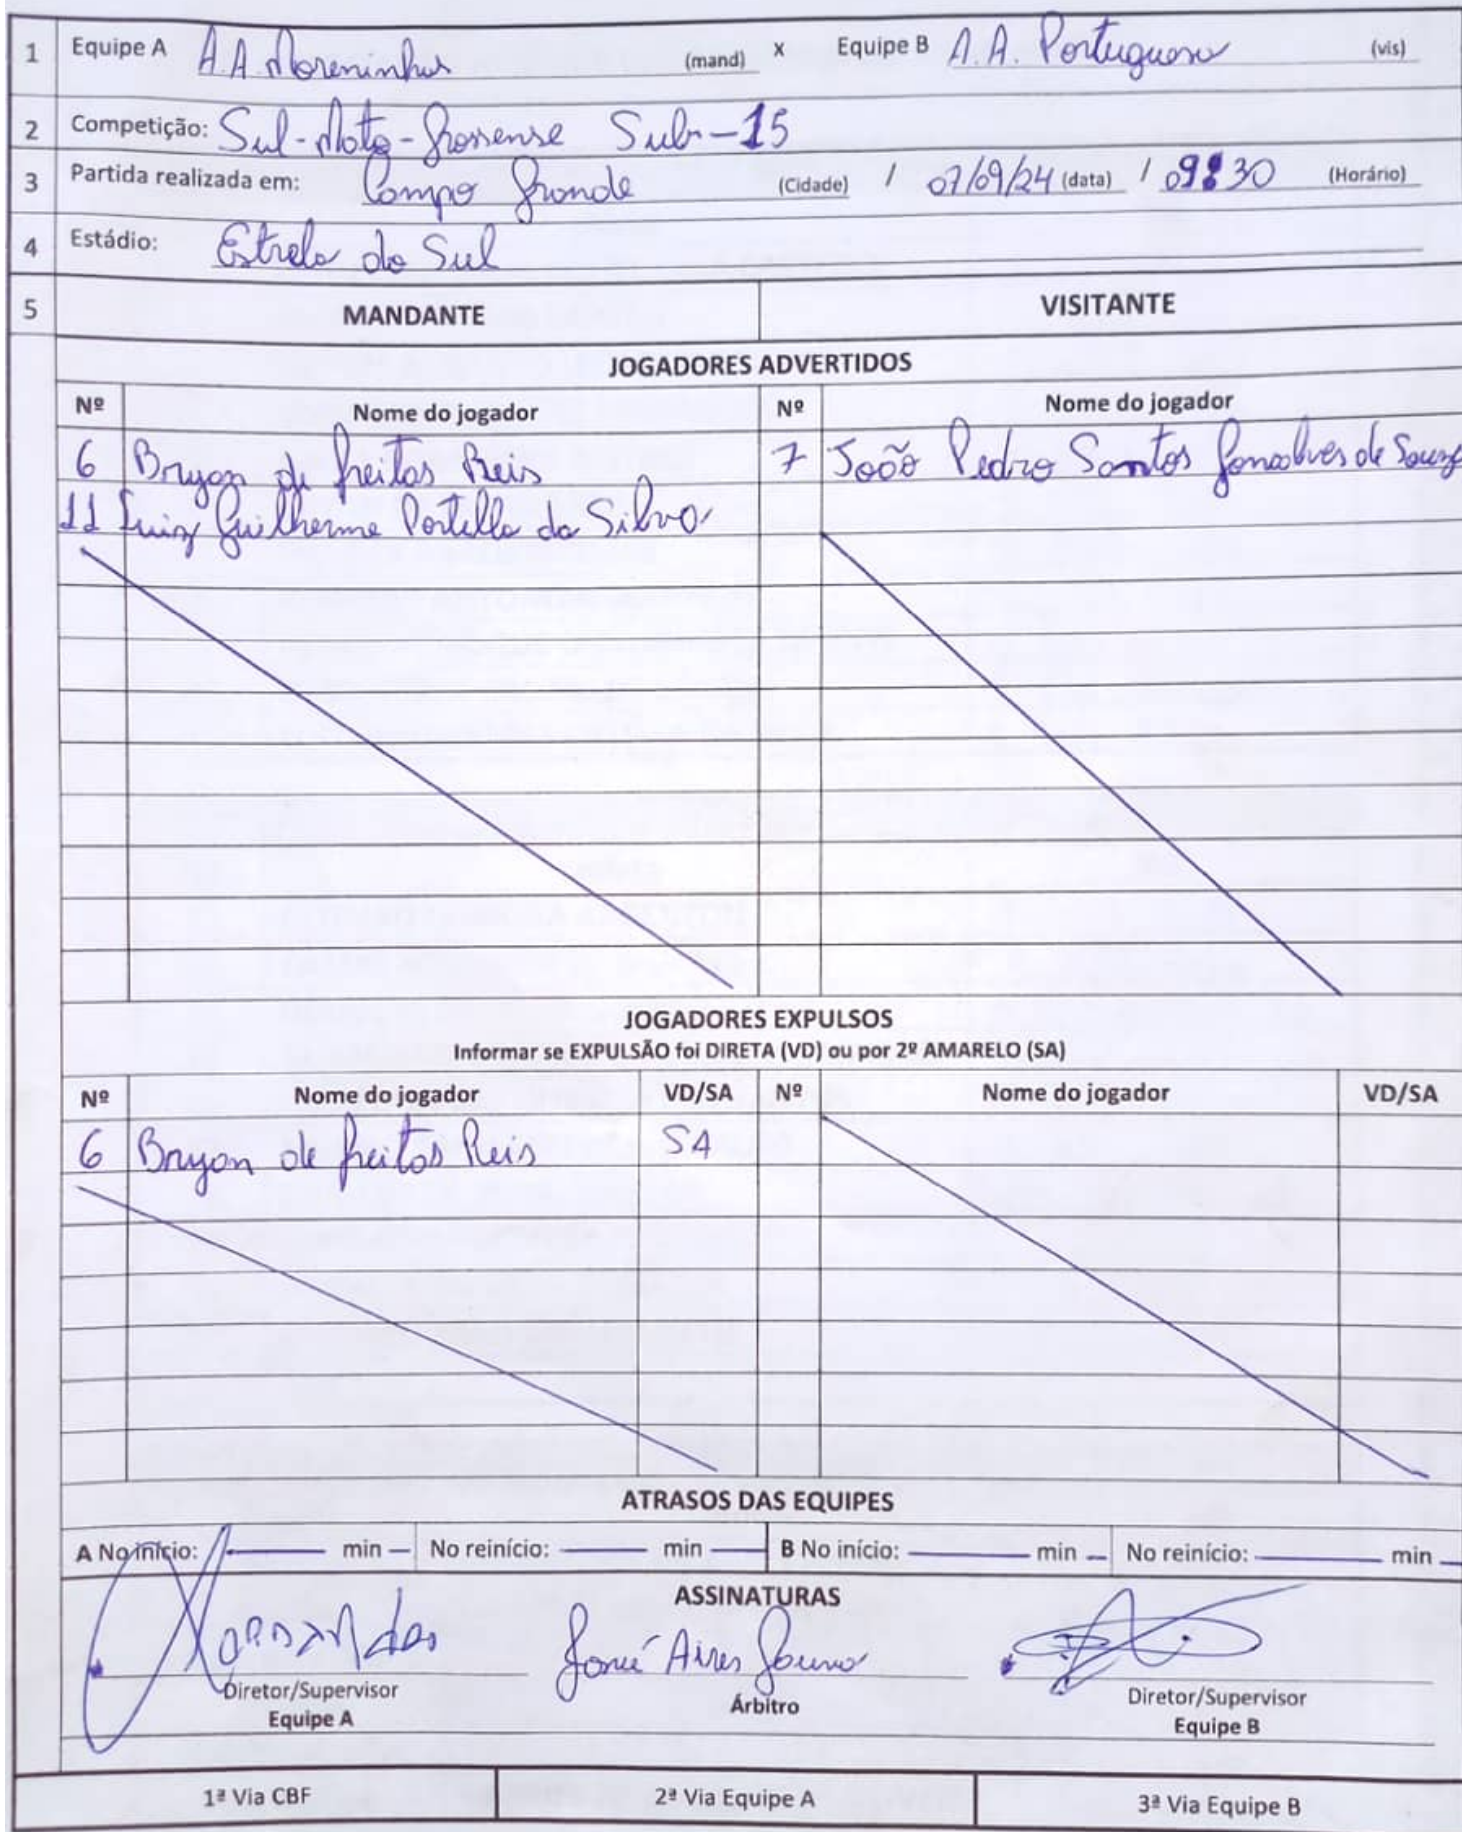 1 Equipe A A.A. Moreninhas (mand) x Equipe B A.A. Portuguesa (vis)
2 Competição: Sul-Mato-Grossense Sub-15
3 Partida realizada em: Campo Grande (Cidade) / 07/09/24 (data) / 09:30 (Horário)
4 Estádio: Estrela do Sul
5 MANDANTE VISITANTE
JOGADORES ADVERTIDOS
Nº Nome do jogador Nº Nome do jogador
6 Bryan de freitas Reis 7 João Pedro Santos Gonçalves de Souza
11 Luiz Guilherme Portella da Silva
JOGADORES EXPULSOS
Informar se EXPULSÃO foi DIRETA (VD) ou por 2º AMARELO (SA)
Nº Nome do jogador VD/SA Nº Nome do jogador VD/SA
6 Bryan de freitas Reis SA
ATRASOS DAS EQUIPES
A No início: min No reinício: min B No início: min No reinício: min
ASSINATURAS
Diretor/Supervisor Árbitro Diretor/Supervisor
Equipe A Equipe B
1ª Via CBF 2ª Via Equipe A 3ª Via Equipe B